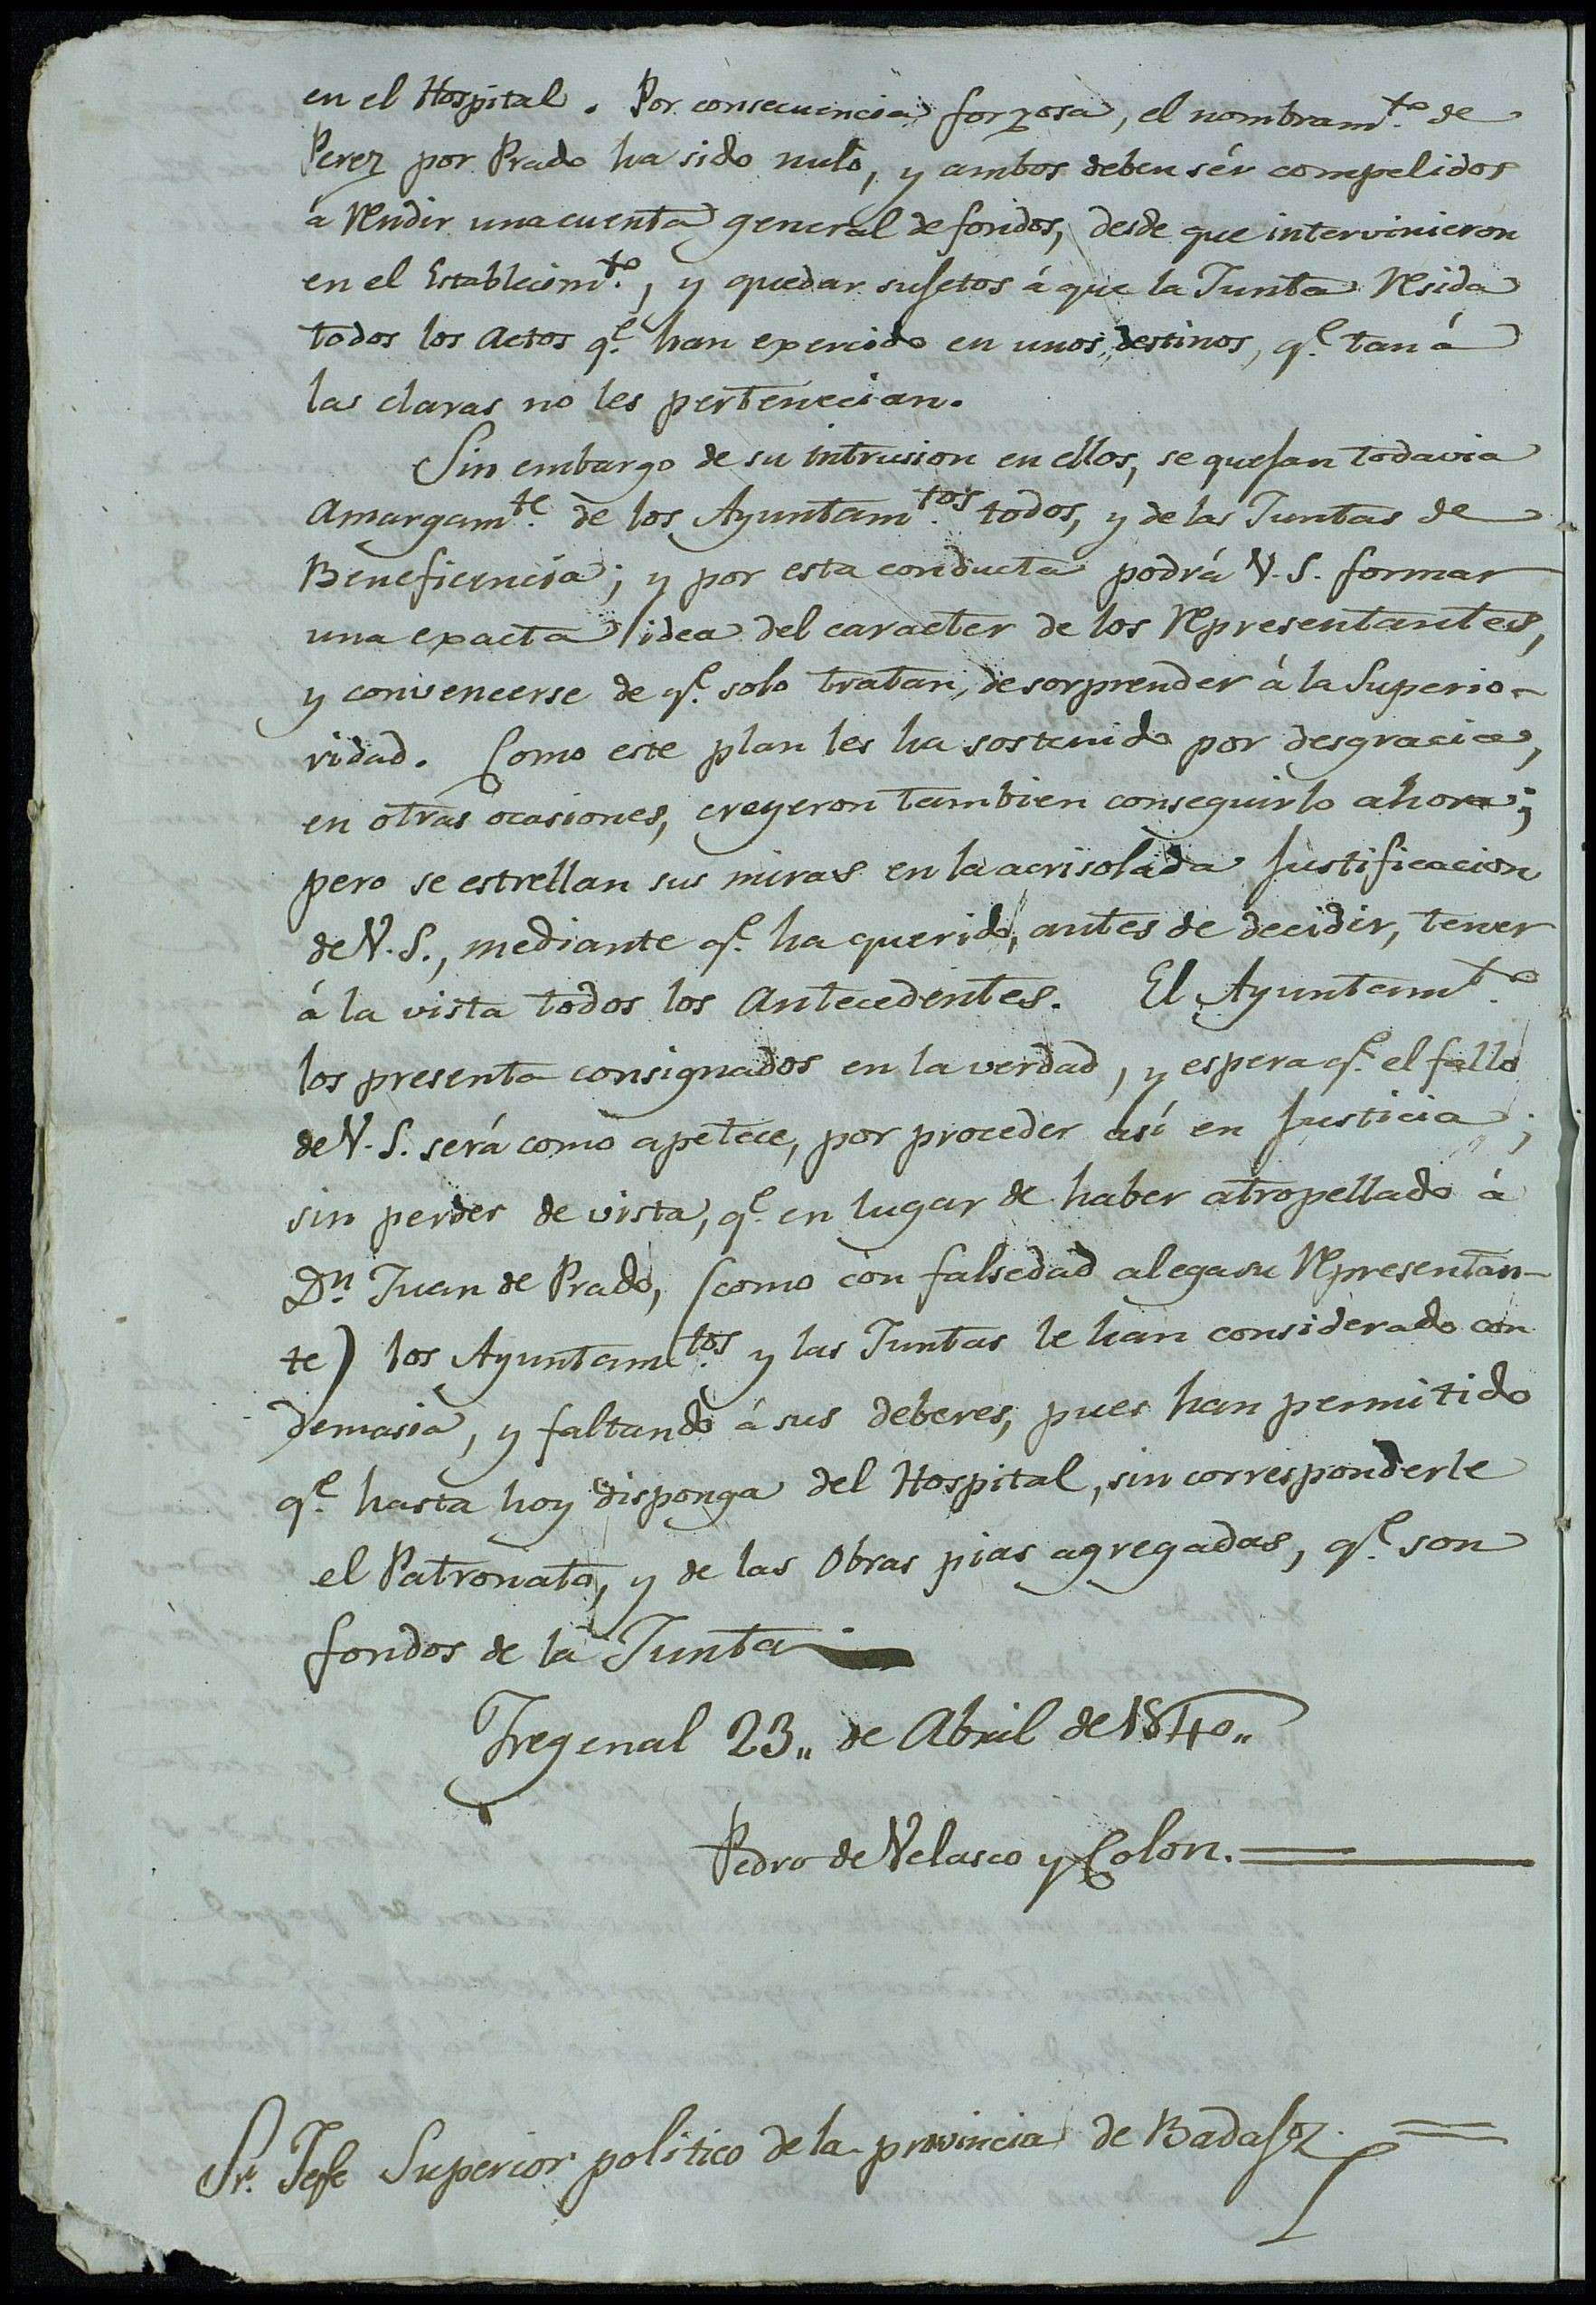 en el Hospital. Por consecuencia forzosa, el nombram.to de
Perez por Prado ha sido nulo, y ambos deben sér compelidos
á rendir una cuenta general de fondos, desde que intervinieron
en el Establecim.to, y quedar sujetos á que la Junta resida
todos los actos q.e han exercido en unos destinos, q.e tan á
las claras no les pertenecian.
Sin embargo de su intrusion en ellos, se quejan todavia
amargam.te de los Ayuntam.tos todos, y de las Juntas de
Beneficencia; y por esta conducta podrá V.S. formar
una exacta idea del caracter de los representantes,
y convencerse de q.e solo tratan, de sorprender á la Superio-
ridad. Como este plan les ha sostenido por desgracia,
en otras ocasiones, creyeron tambien conseguirlo ahora;
pero se estrellan sus miras en la acrisolada justificacion
de V.S., mediante q.e ha querido, antes de decidir, tener
á la vista todos los antecedentes. El Ayuntam.to
los presenta consignados en la verdad, y espera q.e el fallo
de V.S. será como apetece, por proceder así en justicia;
sin perder de vista, q.e en lugar de haber atropellado á
D.n Juan de Prado, (como con falsedad alega su representan-
te) los Ayuntam.tos y las Juntas le han considerado con
demasia, y faltando á sus deberes, pues han permitido
q.e hasta hoy disponga del Hospital, sin corresponderle
el Patronato, y de las Obras pias agregadas, q.e son
fondos de la Junta.
Fregenal 23,, de Abril de 1840,,
Pedro de Velasco y Colon.
Sr. Jefe Superior politico de la provincia de Badajoz.